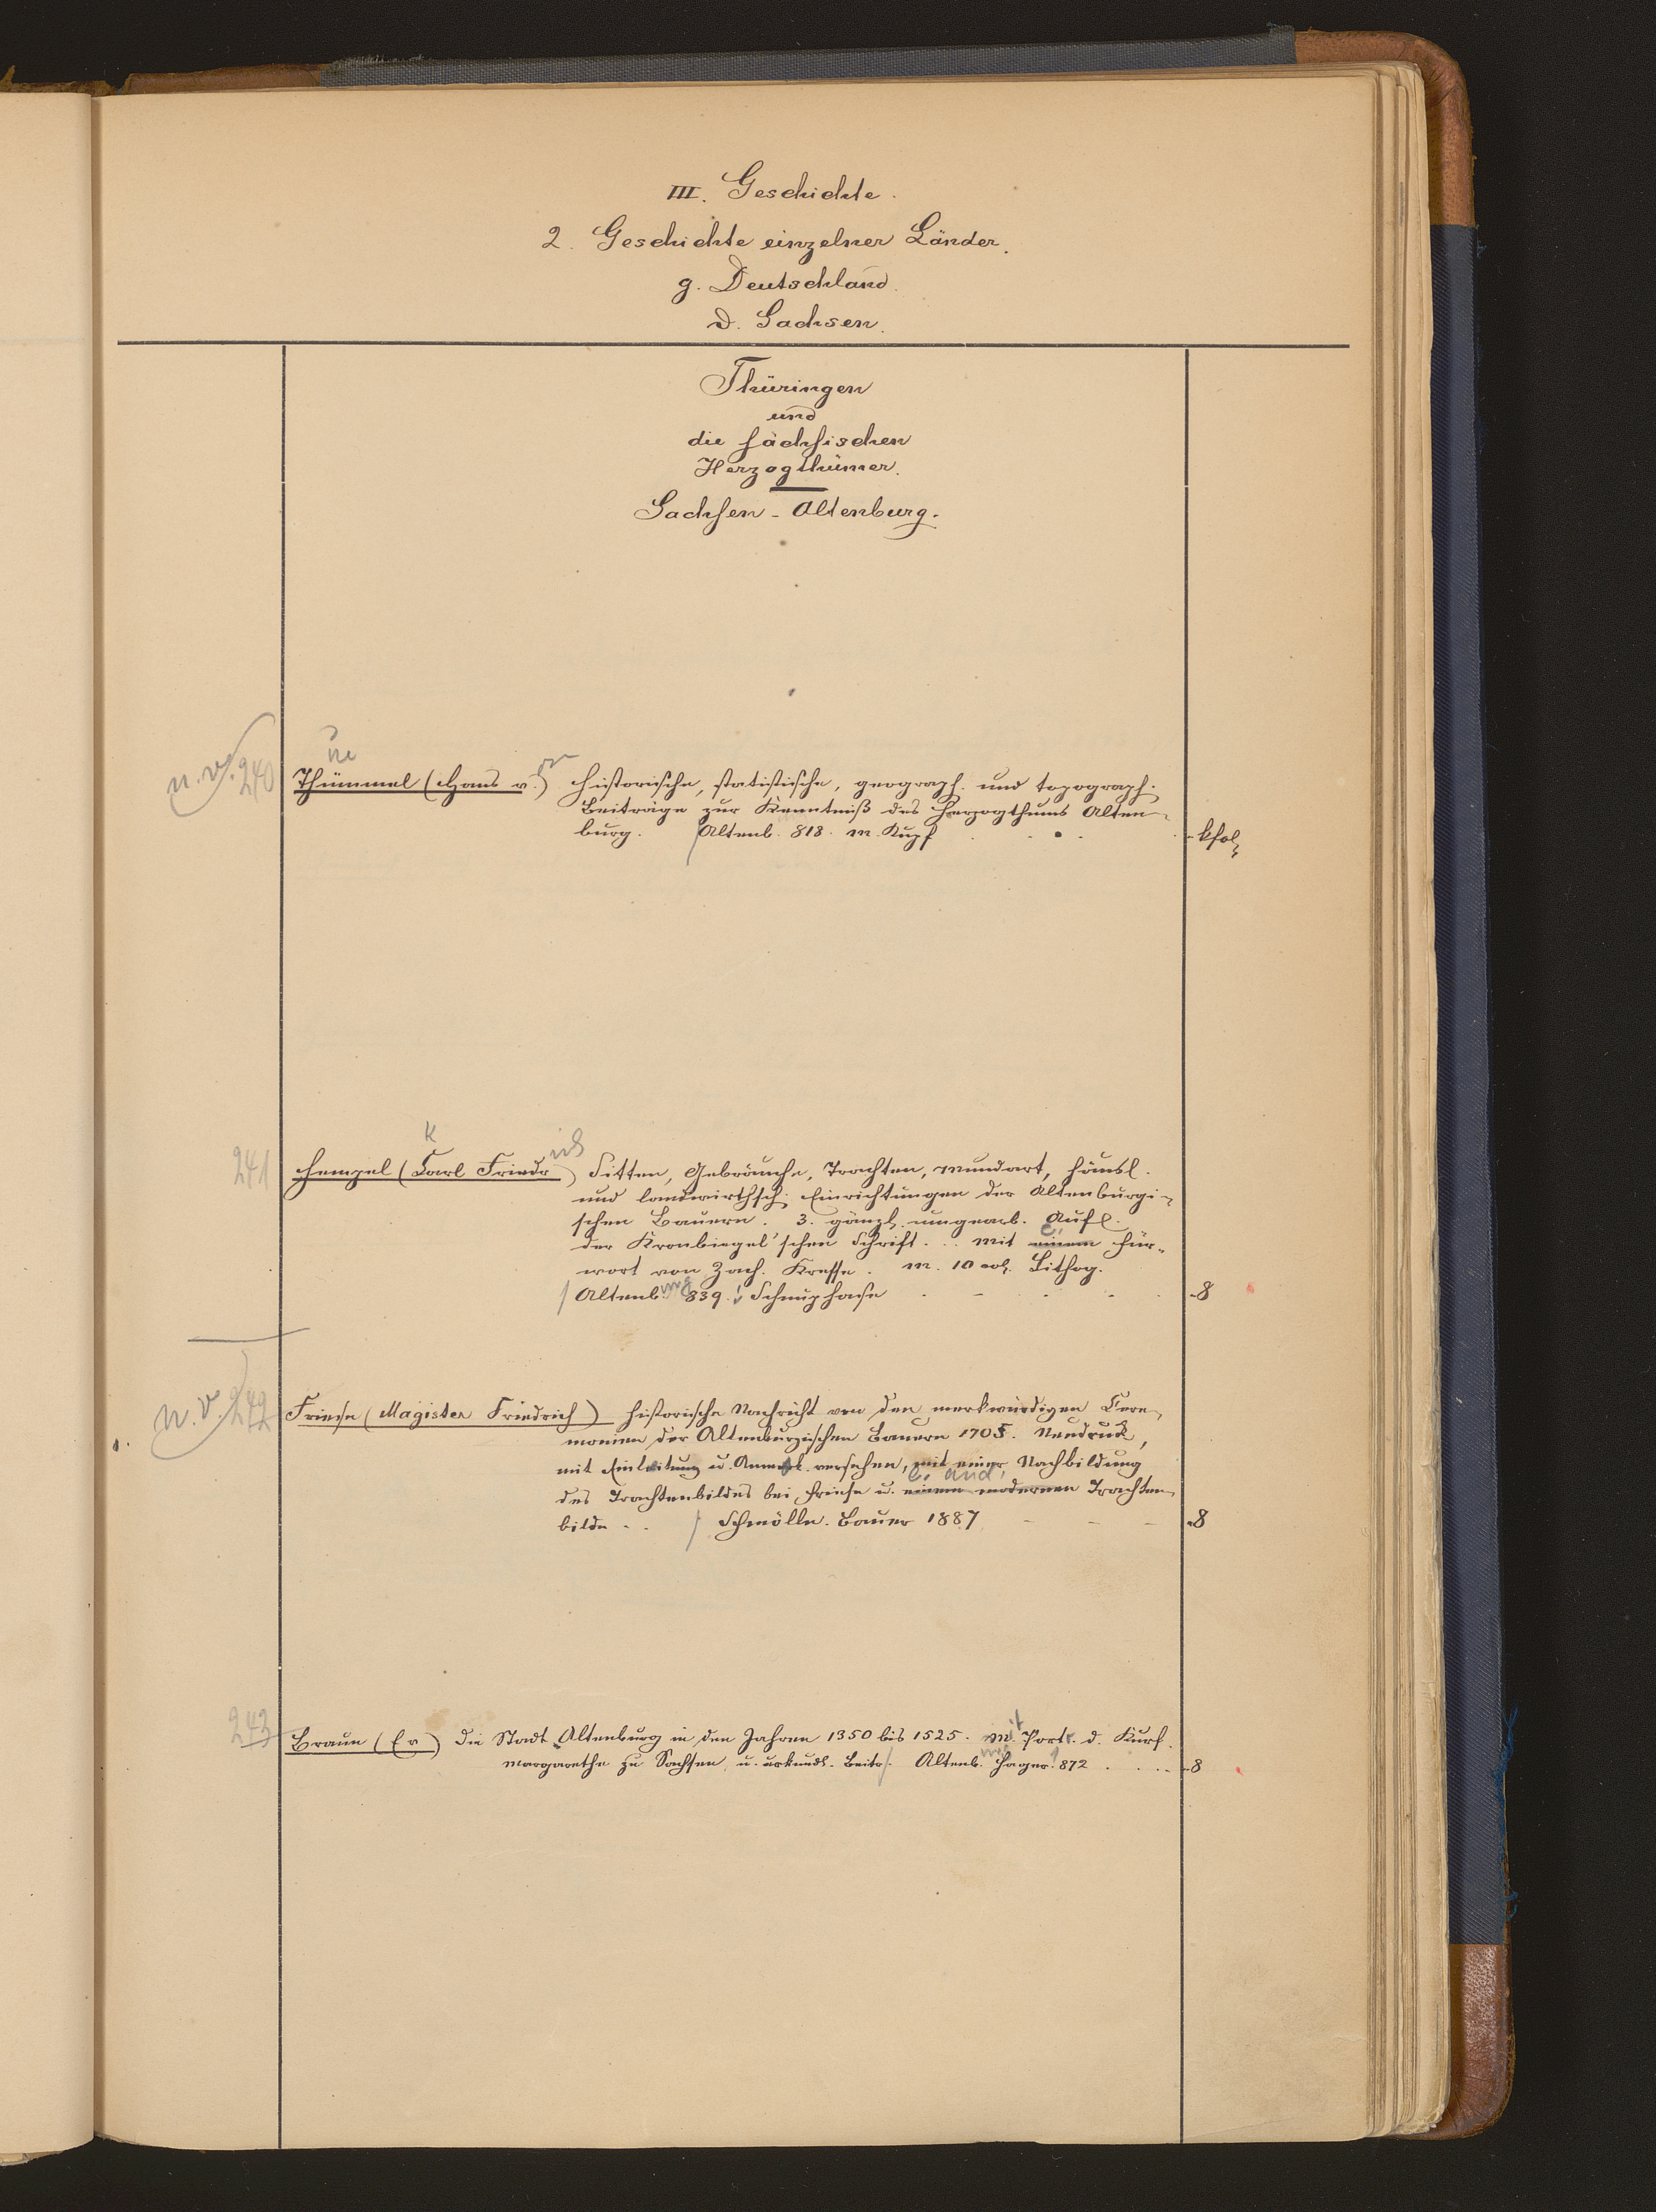 III. Geschichte.
2. Geschichte einzelner Länder.
g. Deutschland.
d. Sachsen.
Thüringen
und
die sächsischen
Herzogthümer.
Sachsen-Altenburg.
n. v. 240
Thümmel (Hans v.) Historische, statistische, geograph. und topograph.
Beiträge zur Kenntniß des Herzogthums Alten-
burg. Altenb. 818. m. Kupf
kfol
241
K
rich
Hempel (Carl Friedr) Sitten, Gebräuche, Trachten, Mundart, häusl.
und landwirthsch. Einrichtungen der Altenburgi-
schen Bauern. 3. gänzl. umgearb. Aufl.
der Kronbiegel'schen Schrift... mit einem Für-
wort von Zach. Kresse. M. 10 col. Lithog.
Altenb. 839. Schnuphase
8
n. v. 242
Friese (Magister Friedrich) Historische Nachricht von den merkwürdigen Cere-
monien der Altenburgischen Bauern 1703. Neudruck,
mit Einleitung u. Anmerk. versehen, mit einer Nachbildung
e. and.
des Trachtenbildes bei Friese u. einem modernen Trachten-
bilde .. Schmölln. Bauer 1887
8
243
Braun (Er) Die Stadt Altenburg in den Jahren 1350 bis 1525. Mit Portr. d. Kurf.
Margarethe zu Sachsen u. urkundl. Beitr. Altenb. Hager. 872
8